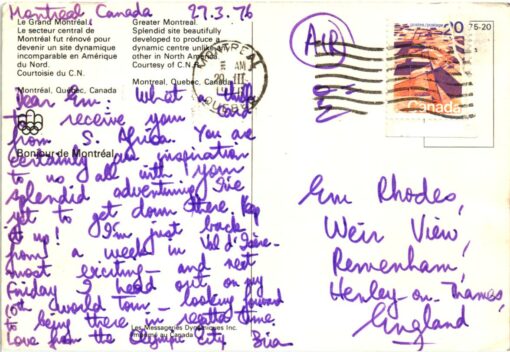 Montreal Canada 27.3.76
Le Grand Montréal.
Le secteur central de
Montréal fut rénové pour
devenir un site dynamique
incomparable en Amérique
du Nord.
Courtoisie du C.N.
Montréal, Québec, Canada
Greater Montreal.
Splendid site beautifully
developed to produce a
dynamic centre unlike any
other in North America.
Courtesy of C.N.R.
Montreal, Quebec, Canada
Dear Em: What a thrill
to receive your card
from S. Africa. You are
certainly an inspiration
Bonjour de Montréal
to us all with your
splendid adventuring I've
yet to get down there Keep
it up! I'm just back
from a week in Val d'Isère
most exciting - and next
Friday I head out on my
10th world tour - looking forward
to being there in regatta time
Les Messageries Dynamiques Inc.
Imprimé au Canada
Love from the Olympic City
MONTREAL
III
QUEBEC
AIR
postes/postage
20
75-20
Canada
Em Rhodes,
Weir View,
Remenham,
Henley-on-Thames,
England